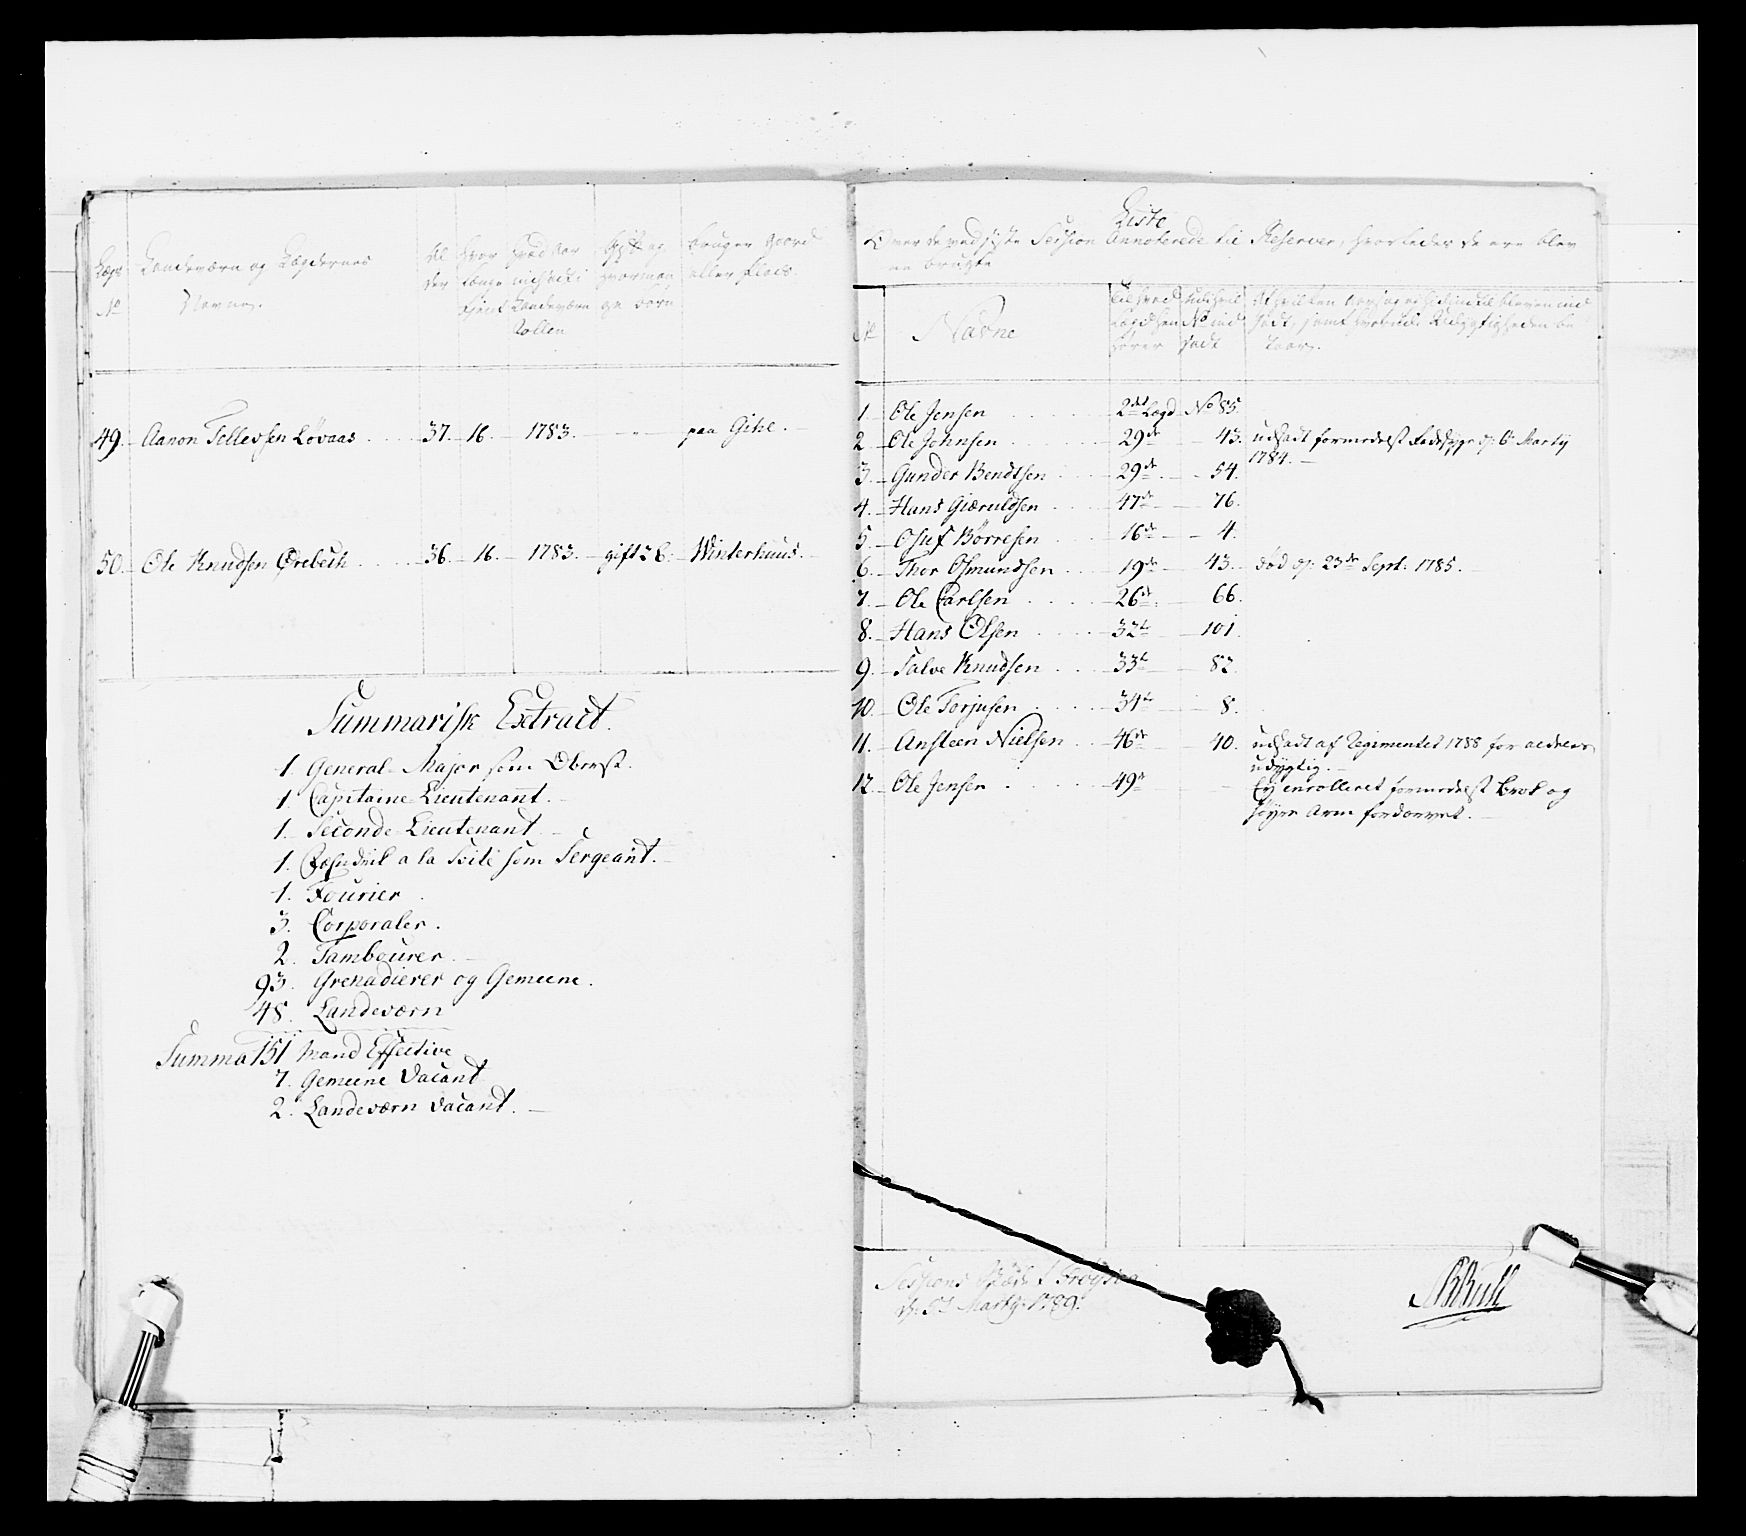 Lægs No
Landeværn og Lægdernes Navne.
Al der
hvor længe tient
hvad Aar indsadt i Landeværn Rollen
Gift og hvormange børn
bruger Gaard eller Plads.
49. Aanon Tellevsen Løvaas 37. 16. 1783. - paa Gihe.
50. Ole Knudsen Ørebech 36. 16. 1783. gift 3 B. Winterhuus.
Summarisk Extract.
1. General-Major som Oberst.
1. Capitaine-Lieutenant.
1. Seconde-Lieutenant.
1. a la Svite som Sergeant.
1. Fourier.
3. Corporaler.
2. Tambourer.
93. Grenadierer og Gemeene.
48. Landeværn
Summa 151 Mand Effective
7. Gemeene Vacant
2. Landeværn Vacant.
Liste
Over de ved sidste Session Annoterede til Reserver, hvorledes de ere blev
en brugte
No
Navne
til hvad Lægd hen hører
udi hvil No ind sadt
1. Ole Jensen 2det Lægd No 85.
2. Ole Johnsen 29de 43. udsadt formedelst Radesyge d: 6 Martij
1784.
3. Gunder Bendtsen 29de 54.
4. Hans Giæruldsen 47de 76.
5. Osuf Børresen 16de 4.
6. Thor Osmundsen 19de 43. død d: 23de Sept: 1785.
7. Ole Carlsen 26de 66.
8. Hans Olsen 32te 101.
9. Salve Knudsen 33te 82.
10. Ole Terjusen 34te 8.
11. Ansteen Nielsen 46de 40. udsadt af Regimentet 1788 for aldeles
udygtig.
12. Ole Jensen 49de - Ej enrolleret formedelst Brok og
høyre Arm fordærvet.
Sessions
Martij 1789.
Bull